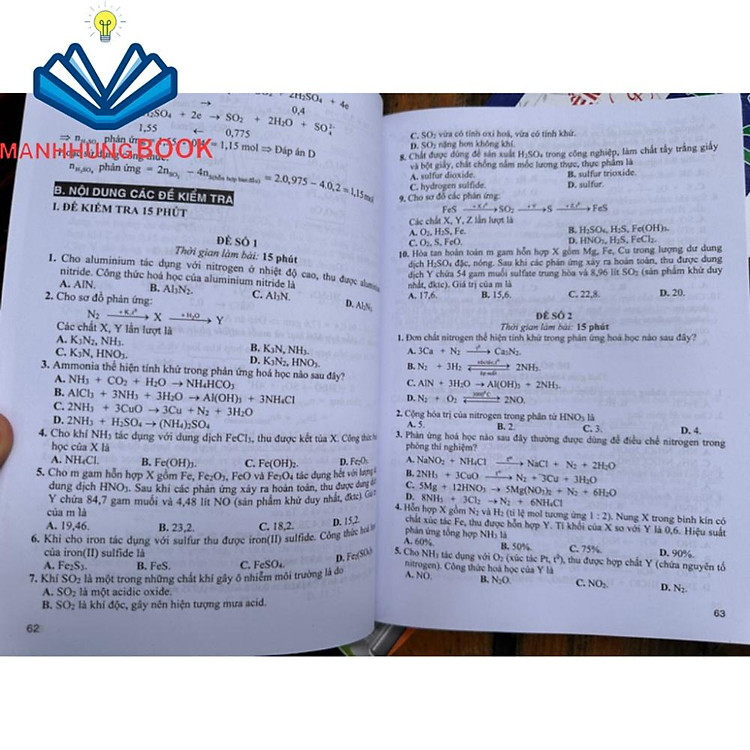 MANHHUNG BOOK
2H₂SO₄ + 4e
0,4
H₂SO₄ + 2e → SO₂ + 2H₂O + SO₄²⁻
1,55 ← 0,775
phản ứng = 1,15 mol ⇒ Đáp án D
phản ứng = 2n - 4n = 2.0,975 – 4.0,2 = 1,15 mol
B. NỘI DUNG CÁC ĐỀ KIỂM TRA
I. ĐỀ KIỂM TRA 15 PHÚT
ĐỀ SỐ 1
Thời gian làm bài: 15 phút
1. Cho aluminium tác dụng với nitrogen ở nhiệt độ cao, thu được aluminium
nitride. Công thức hoá học của aluminium nitride là
A. AlN. B. Al₃N₂. C. Al₃N. D. Al₂N₃
2. Cho sơ đồ phản ứng:
N₂ → X +H₂O → Y
Các chất X, Y lần lượt là
A. K₃N₂, NH₃. B. K₃N, NH₃.
C. K₃N, HNO₃. D. K₃N₂, HNO₃.
3. Ammonia thể hiện tính khử trong phản ứng hoá học nào sau đây?
A. NH₃ + CO₂ + H₂O → NH₄HCO₃
B. AlCl₃ + 3NH₃ + 3H₂O → Al(OH)₃ + 3NH₄Cl
C. 2NH₃ + 3CuO → 3Cu + N₂ + 3H₂O
D. 2NH₃ + H₂SO₄ → (NH₄)₂SO₄
4. Cho khí NH₃ tác dụng với dung dịch FeCl₃, thu được kết tủa X. Công thức hoá
học của X là
A. NH₄Cl. B. Fe(OH)₃. C. Fe(OH)₂. D. Fe₂O₃.
5. Cho m gam hỗn hợp X gồm Fe, Fe₂O₃, FeO và Fe₃O₄ tác dụng hết với lượng dư
dung dịch HNO₃. Sau khi các phản ứng xảy ra hoàn toàn, thu được dung dịch
Y chứa 84,7 gam muối và 4,48 lít NO (sản phẩm khử duy nhất, đktc). Giá trị
của m là
A. 19,46. B. 23,2. C. 18,2. D. 15,2.
6. Khi cho iron tác dụng với sulfur thu được iron(II) sulfide. Công thức hoá học
của iron(II) sulfide là
A. Fe₂S₃. B. FeS. C. FeSO₄. D. Fe₂(SO₄)₃
7. Khí SO₂ là một trong những chất khí gây ô nhiễm môi trường là do
A. SO₂ là một acidic oxide.
B. SO₂ là khí độc, gây nên hiện tượng mưa acid.
62
C. SO₂ vừa có tính oxi hoá, vừa có tính khử.
D. SO₂ nặng hơn không khí.
8. Chất được dùng để sản xuất H₂SO₄ trong công nghiệp, làm chất tẩy trắng giấy
và bột giấy, chất chống nấm mốc lương thực, thực phẩm là
A. sulfur dioxide. B. sulfur trioxide.
C. hydrogen sulfide. D. sulfur.
9. Cho sơ đồ các phản ứng:
FeS → SO₂ → S → FeS
Các chất X, Y, Z lần lượt là
A. O₂, H₂S, Fe. B. H₂SO₄, H₂S, Fe(OH)₃.
C. O₂, S, FeO. D. HNO₃, H₂S, FeCl₂.
10. Hòa tan hoàn toàn m gam hỗn hợp X gồm Mg, Fe, Cu trong lượng dư dung
dịch H₂SO₄ đặc, nóng. Sau khi các phản ứng xảy ra hoàn toàn, thu được dung
dịch Y chứa 54 gam muối sulfate trung hòa và 8,96 lít SO₂ (sản phẩm khử duy
nhất, đktc). Giá trị của m là
A. 17,6. B. 15,6. C. 22,8. D. 20.
ĐỀ SỐ 2
Thời gian làm bài: 15 phút
1. Đơn chất nitrogen thể hiện tính khử trong phản ứng hoá học nào sau đây?
A. 3Ca + N₂ → Ca₃N₂.
B. N₂ + 3H₂ ⇌ 2NH₃.
C. AlN + 3H₂O → Al(OH)₃ + 2NH₃.
D. N₂ + O₂ ⇌ 2NO.
2. Cộng hóa trị của nitrogen trong phân tử HNO₃ là
A. 5. B. 2. C. 3. D. 4.
3. Phản ứng hoá học nào sau đây thường được dùng để điều chế nitrogen trong
phòng thí nghiệm?
A. NaNO₂ + NH₄Cl → NaCl + N₂ + 2H₂O
B. 2NH₃ + 3CuO → N₂ + 3Cu + 3H₂O
C. 5Mg + 12HNO₃ → 5Mg(NO₃)₂ + N₂ + 6H₂O
D. 8NH₃ + 3Cl₂ → N₂ + 6NH₄Cl
4. Hỗn hợp X gồm N₂ và H₂ (tỉ lệ mol tương ứng 1 : 2). Nung X trong bình kín có
chất xúc tác Fe, thu được hỗn hợp Y. Tỉ khối của X so với Y là 0,6. Hiệu suất
phản ứng tổng hợp NH₃ là
A. 60%. B. 50%. C. 75%. D. 90%.
5. Cho NH₃ tác dụng với O₂ (xúc tác Pt, t°), thu được hợp chất Y (chứa nguyên tố
nitrogen). Công thức hoá học của Y là
A. NO. B. N₂O. C. NO₂. D. N₂.
63